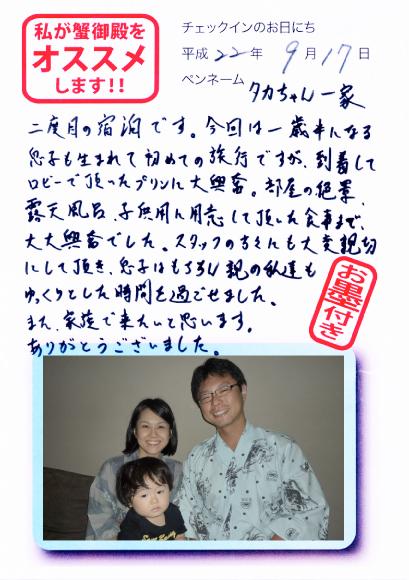 私が蟹御殿を
オススメ
します!!
チェックインのお日にち
平成 22年 9月17日
ペンネーム
タカちゃん一家
二度目の宿泊です。今回は一歳半になる
息子も生まれて初めての旅行ですが、到着して
ロビーで頂いたプリンに大興奮。部屋の絶景、
露天風呂、子供用に用意して頂いた食事まで、
大大興奮でした。スタッフの方々も大変親切
にして頂き、息子はもちろん親の私達も
ゆっくりとした時間を過ごせました。
また、家族で来たいと思います。
ありがとうございました。
お墨付き